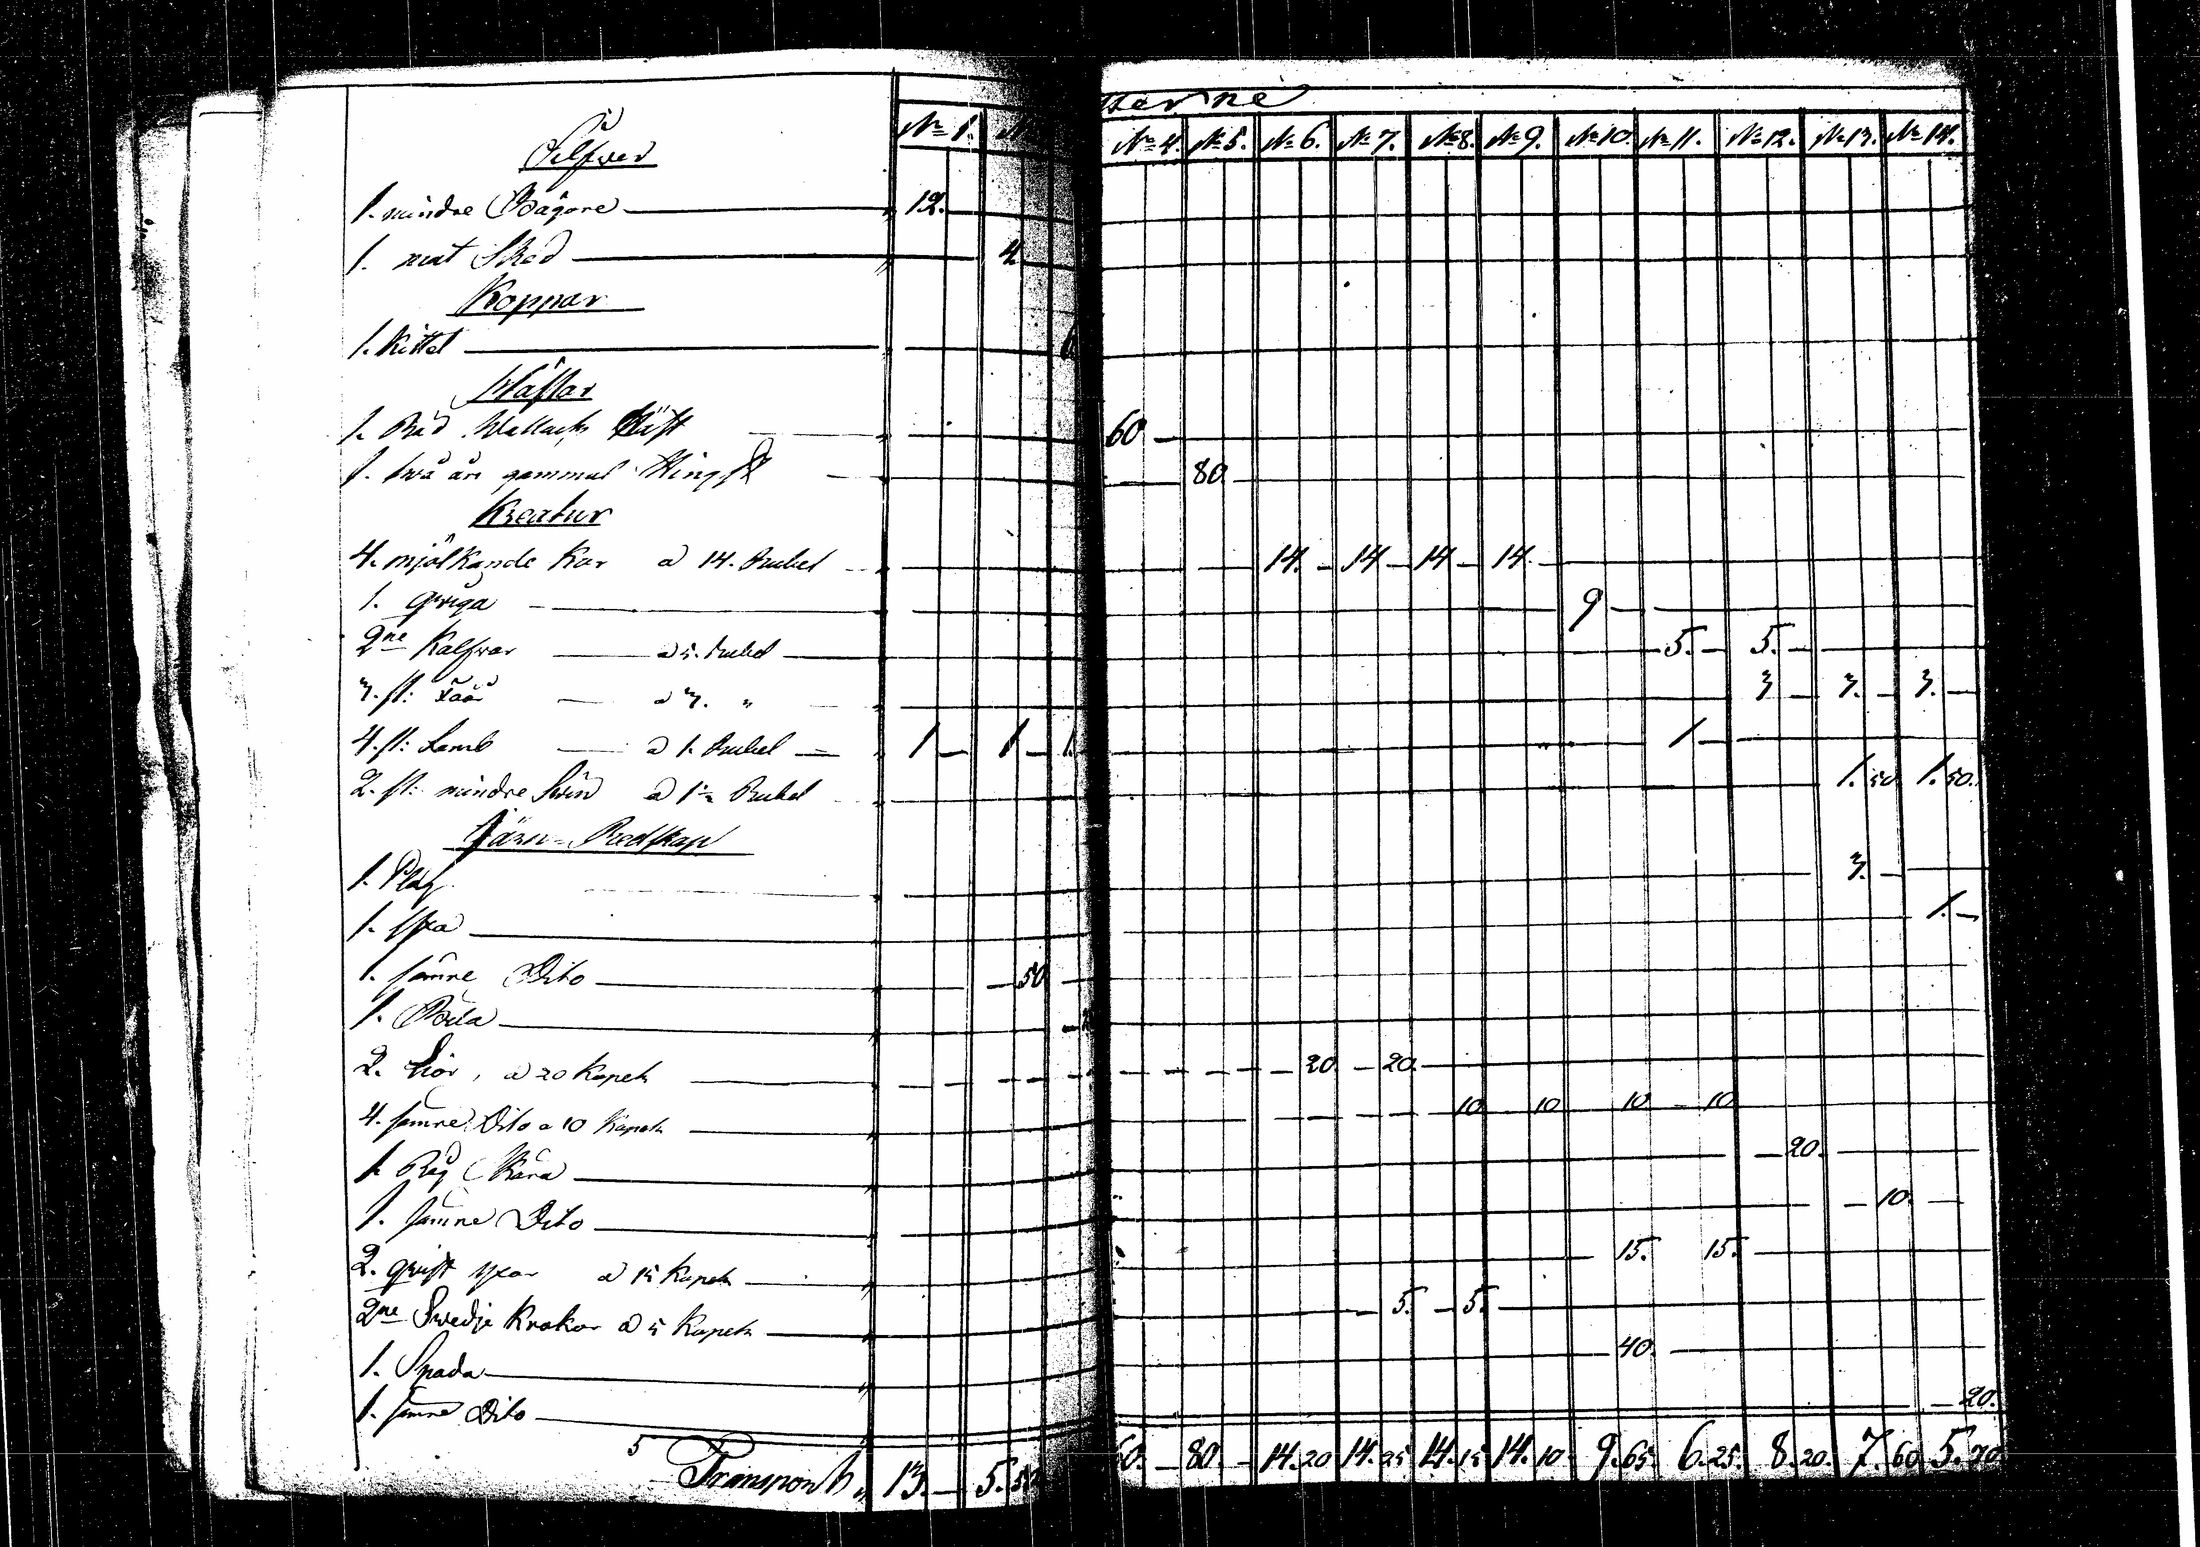 № 1. № 4. № 5. № 6. № 7. № 8. № 9. № 10. № 11. № 12. № 13. № 14.
Silfver
1. mindre Bägare 12.
1. mat Sked 4
Koppar
1. Kittel 6
Hästar
1. Röd Wallack Häst 60 —
1. två års gammal Hingst 80.
Kreatur
4. mjölkande Kor a 14. Rubel 14. — 14 — 14 — 14. —
1. Qviga 9 —
2ne Kalfvar a 5. Rubel 5. — 5. —
3. st: Fåår a 3. " 3 — 3. — 3. —
4. st: Lamb a 1. Rubel 1 — 1 — 1. 1 —
2. st: mindre Svin a 1½ Rubel 1. 50. 1. 50.
Järn-Redskap
1. Plog 3. —
1. yxa 1. —
1. sämre Dito — 50
1. Bila
2. Liar, a 20 Kopek — 20. — 20.
4. sämre Dito a 10 Kopek 10 10 10 10
1. Råg Skära — 20.
1. sämre Dito — 10. —
2. qvist yxor a 15 Kopek 15. 15.
2ne Swedje Krokar a 5 Kopek — 5. — 5.
1. Spada 40.
1. sämre Dito — 20.
Transport 13. — 5. 50 60. — 80. — 14. 20 14. 25 14. 15 14. 10. 9. 65. 6. 25. 8. 20. 7. 60 5. 70